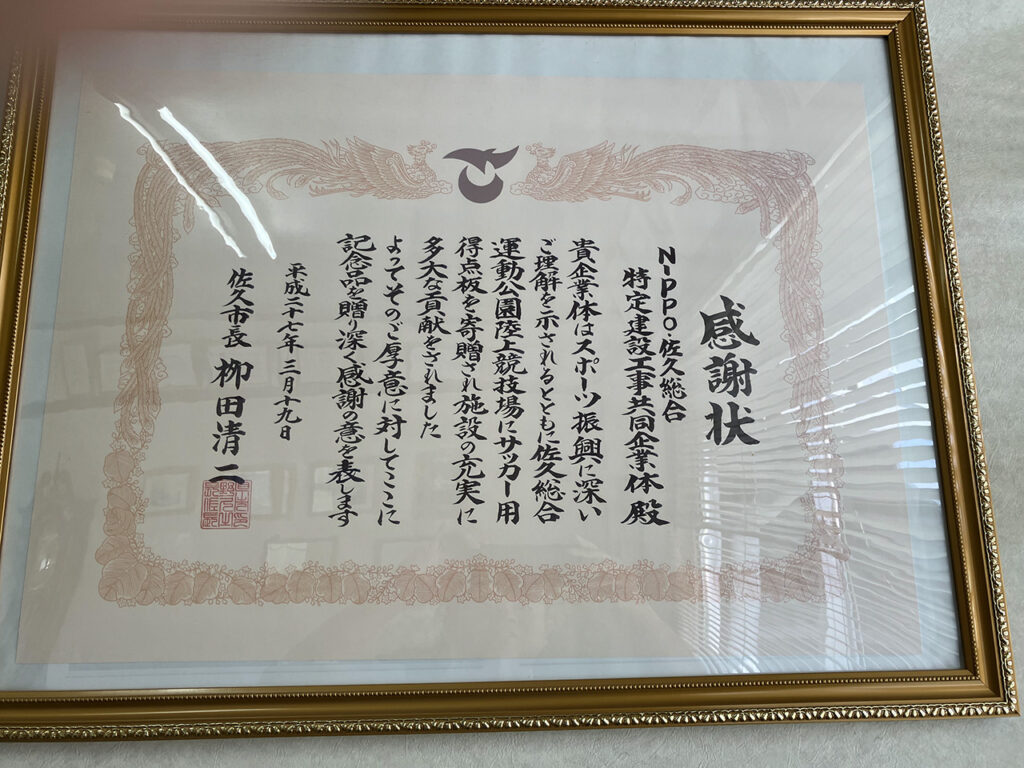 感謝状
NIPPO・佐久総合
特定建設工事共同企業体 殿
貴企業体はスポーツ振興に深い
ご理解を示されるとともに佐久総合
運動公園陸上競技場にサッカー用
得点板を寄贈され施設の充実に
多大な貢献をされました
よってそのご厚意に対してここに
記念品を贈り深く感謝の意を表します
平成二十七年 三月十九日
佐久市長 栁田清二